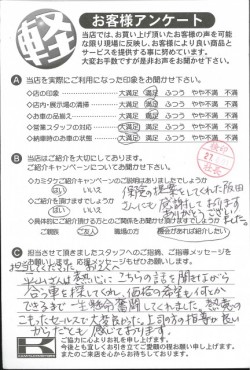 軽
お客様アンケート
当店では、お買い上げ頂いたお客様の声を可能
な限り現場に反映し、お客様により良い商品と
サービスを提供する事に努めています。
大変お手数ですが是非お声をお聞かせ下さい。
A 当店を実際にご利用になった印象をお聞かせ下さい。
◇店の印象 大満足 満足 ふつう やや不満 不満
◇店内・展示場の清掃 大満足 満足 ふつう やや不満 不満
◇お車の品揃え 大満足 満足 ふつう やや不満 不満
◇営業スタッフの対応 大満足 満足 ふつう やや不満 不満
◇納車時のお車の状態 大満足 満足 ふつう やや不満 不満
B 当店はご紹介を大切にしてあります。
ご紹介キャンペーンについてお聞かせください。
◇カミタケご紹介キャンペーンのご説明はありましたか？
はい いいえ
◇ご紹介を頂けますでしょうか
はい いいえ
◇具体的にご紹介頂ける方とのご関係をお聞かせ頂けますか
ご親戚 ご友人 職場の方 機会があれば紹介したい
C 担当させて頂きましたスタッフへのご指摘、ご指導メッセージを
お願いします。応援メッセージもぜひお願いします。
担当してくださった
さんは熱心に、こちらの話を聞きながら
合う車を探してくれ、価格の希望も何とか
できるまで一生懸命奮闘してくれました。熱意の
こもったセールスで大変良かった。上司の方の指導が良い
からだとも感じております。
ご協力に心よりお礼を申し上げます。
今後とも宜しくお引き立てご愛顧の程お願い申し上げます。
またのご来店を心からお待ちしております。